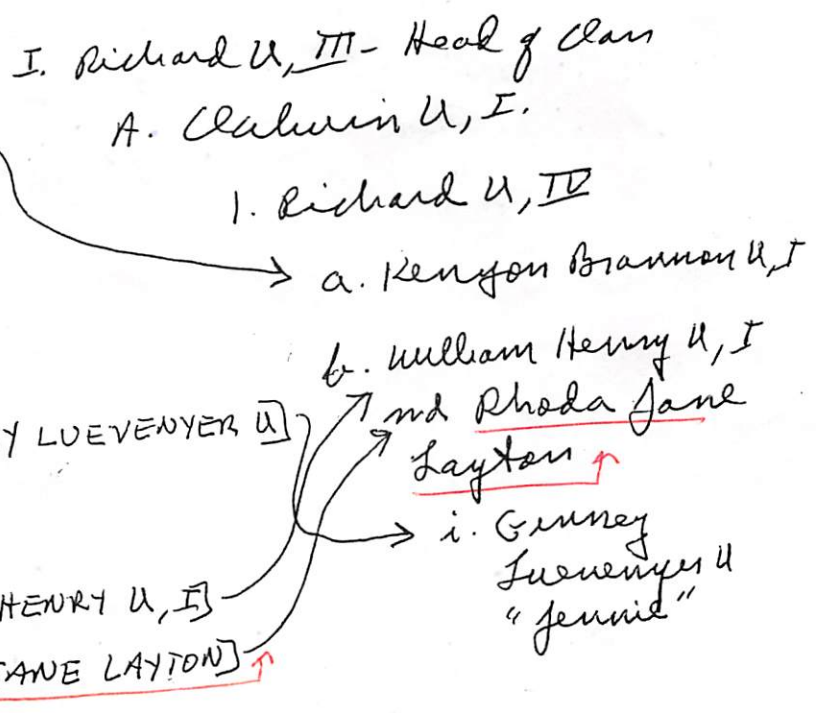 I. Richard U, III - Head of Clan
A. Calwin U, I.
1. Richard U, IV
a. Kenyon Brannon U, I
b. William Henry U, I
md Rhoda Jane
Layton
Y LUEVENYER U]
i. Genney
Luevenyer U
"Jennie"
HENRY U, I]
JANE LAYTON]